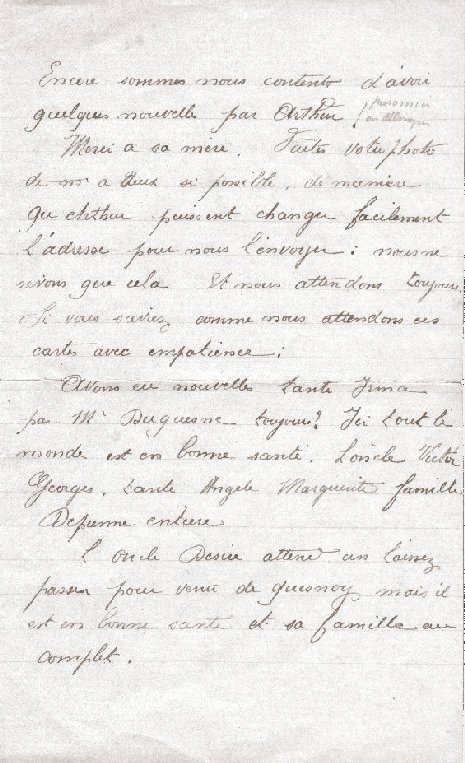 Encore sommes nous contents d'avoir
quelques nouvelle par Arthur (prisonnier
en Allemagne
Merci a sa mère. Faites votre photo
de m a deux si possible, de manière
qu'Arthur puissent changer facilement
l'adresse pour nous l'envoyer : nous ne
rivons que cela Et nous attendons toujours
Si vous saviez comme nous attendons ces
cartes avec empatience ;
Avons eu nouvelles tante Irma
par Mr Duquesne toujours? Ici tout le
monde est en bonne santé. L'oncle Victor
Georges, tante Angele Marguerite famille
Depienne entière
L'oncle Desiré attend un laissez
passer pour venir de Quesnoy mais il
est en bonne santé et sa famille au
complet.